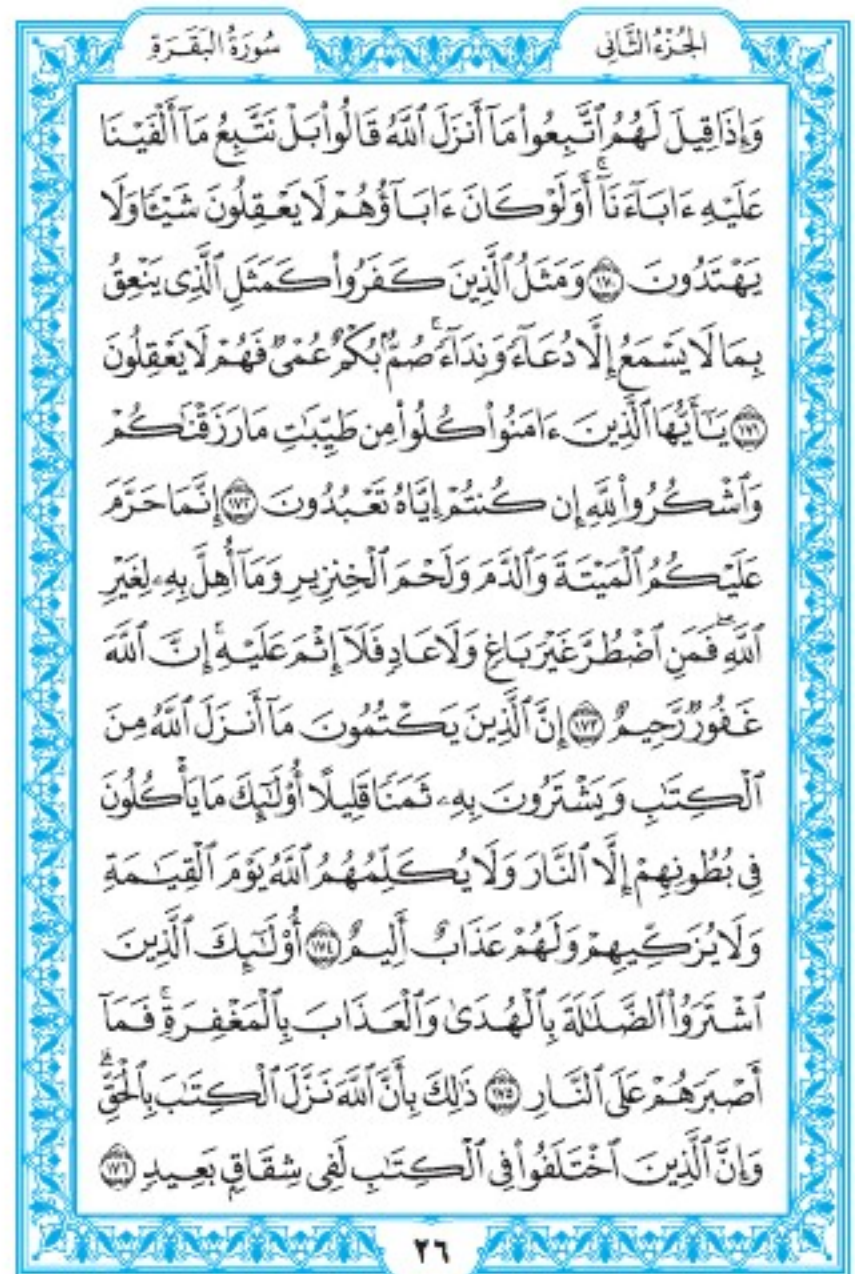 الجُزْءُ الثَّانِي
سُورَةُ البَقَرَةِ
وَإِذَا قِيلَ لَهُمُ ٱتَّبِعُوا۟ مَآ أَنزَلَ ٱللَّهُ قَالُوا۟ بَلْ نَتَّبِعُ مَآ أَلْفَيْنَا
عَلَيْهِ ءَابَآءَنَآ ۚ أَوَلَوْ كَانَ ءَابَآؤُهُمْ لَا يَعْقِلُونَ شَيْـًٔا وَلَا
يَهْتَدُونَ ١٧٠ وَمَثَلُ ٱلَّذِينَ كَفَرُوا۟ كَمَثَلِ ٱلَّذِى يَنْعِقُ
بِمَا لَا يَسْمَعُ إِلَّا دُعَآءً وَنِدَآءً ۚ صُمٌّۢ بُكْمٌ عُمْىٌ فَهُمْ لَا يَعْقِلُونَ
١٧١ يَـٰٓأَيُّهَا ٱلَّذِينَ ءَامَنُوا۟ كُلُوا۟ مِن طَيِّبَـٰتِ مَا رَزَقْنَـٰكُمْ
وَٱشْكُرُوا۟ لِلَّهِ إِن كُنتُمْ إِيَّاهُ تَعْبُدُونَ ١٧٢ إِنَّمَا حَرَّمَ
عَلَيْكُمُ ٱلْمَيْتَةَ وَٱلدَّمَ وَلَحْمَ ٱلْخِنزِيرِ وَمَآ أُهِلَّ بِهِۦ لِغَيْرِ
ٱللَّهِ ۖ فَمَنِ ٱضْطُرَّ غَيْرَ بَاغٍ وَلَا عَادٍ فَلَآ إِثْمَ عَلَيْهِ ۚ إِنَّ ٱللَّهَ
غَفُورٌ رَّحِيمٌ ١٧٣ إِنَّ ٱلَّذِينَ يَكْتُمُونَ مَآ أَنزَلَ ٱللَّهُ مِنَ
ٱلْكِتَـٰبِ وَيَشْتَرُونَ بِهِۦ ثَمَنًا قَلِيلًا أُو۟لَـٰٓئِكَ مَا يَأْكُلُونَ
فِى بُطُونِهِمْ إِلَّا ٱلنَّارَ وَلَا يُكَلِّمُهُمُ ٱللَّهُ يَوْمَ ٱلْقِيَـٰمَةِ
وَلَا يُزَكِّيهِمْ وَلَهُمْ عَذَابٌ أَلِيمٌ ١٧٤ أُو۟لَـٰٓئِكَ ٱلَّذِينَ
ٱشْتَرَوُا۟ ٱلضَّلَـٰلَةَ بِٱلْهُدَىٰ وَٱلْعَذَابَ بِٱلْمَغْفِرَةِ ۚ فَمَآ
أَصْبَرَهُمْ عَلَى ٱلنَّارِ ١٧٥ ذَٰلِكَ بِأَنَّ ٱللَّهَ نَزَّلَ ٱلْكِتَـٰبَ بِٱلْحَقِّ ۗ
وَإِنَّ ٱلَّذِينَ ٱخْتَلَفُوا۟ فِى ٱلْكِتَـٰبِ لَفِى شِقَاقٍۭ بَعِيدٍ ١٧٦
٢٦